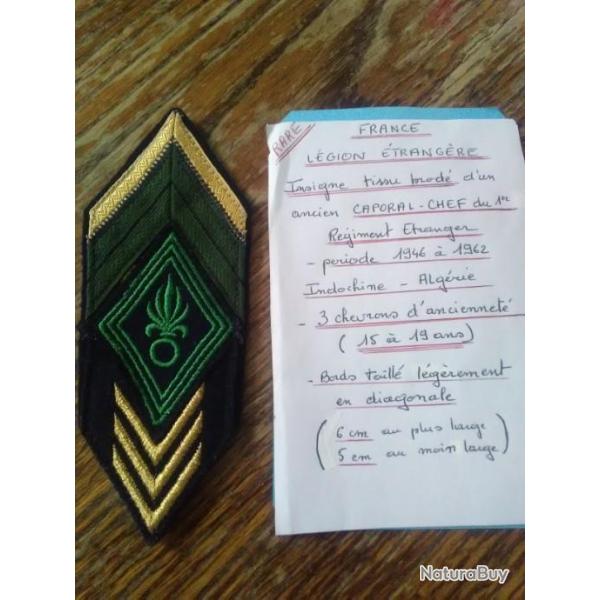 RARE
FRANCE
LÉGION ÉTRANGÈRE
Insigne tissu brodé d'un
ancien CAPORAL-CHEF du 1er
Régiment Etranger
- periode 1946 à 1962
Indochine - Algérie
- 3 chevrons d'ancienneté
( 15 à 19 ans )
- Bords taillé légèrement
en diagonale
( 6 cm au plus large
5 cm au moin large )
NaturaBuy